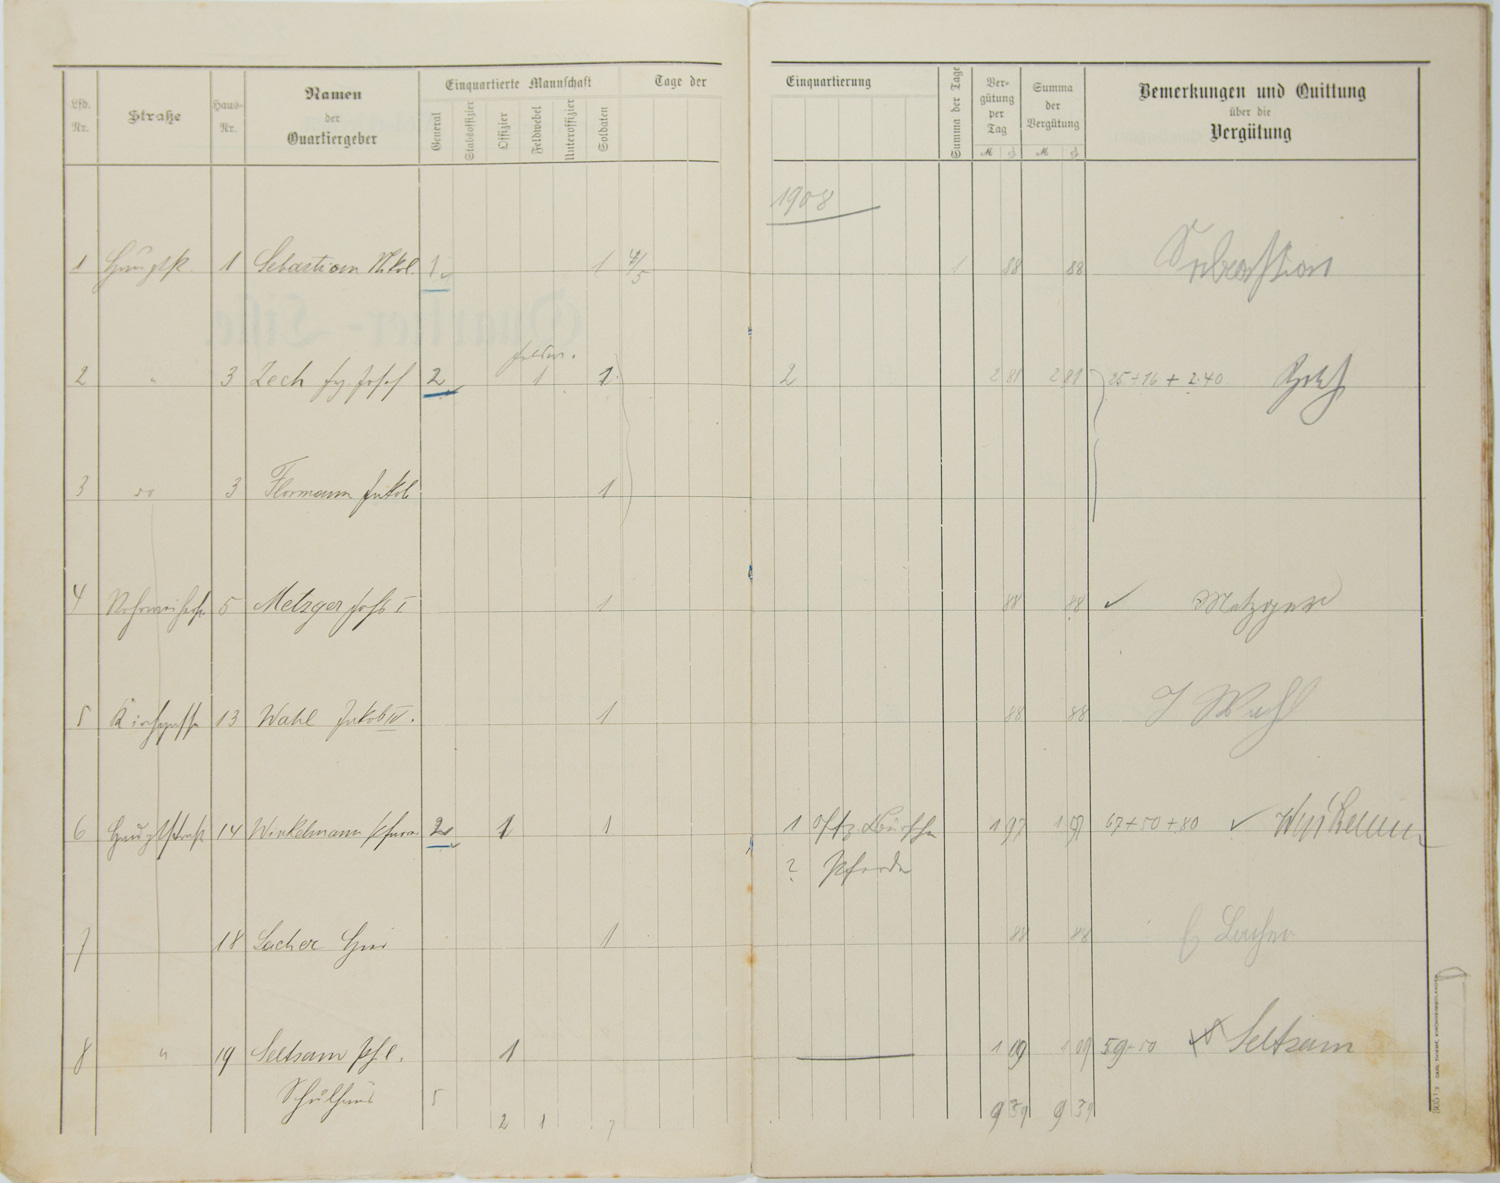 Lfd. Nr. Straße Haus-Nr. Namen der Quartiergeber Einquartierte Mannschaft Tage der Einquartierung Summa der Tage Vergütung per Tag Summa der Vergütung Bemerkungen und Quittung über die Vergütung
General Stabsoffizier Offizier Feldwebel Unteroffizier Soldaten M ₰ M ₰
1908
1 Hauptstr. 1 Sebastian Nikol. 1 1 4/5 1 88 88 Sebastian
Feldw.
2 " 3 Zech Josef 2 1 1 2 2 81 2 81 25+16+2.40 Zech
3 3 Flormann Jakob 1
4 5 Metzger Joh I 1 88 88 ✓ Metzger
5 Kirchgasse 13 Wahl Jakob IV. 1 88 88 J Wahl
6 Hauptstraße 14 Winkelmann 2 1 1 1 Offz Bursche 1 97 1 97 67+50+80 ✓ Winkelmann
2 Pferde
7 18 Lacher 1 88 88 Lacher
8 " 19 Seltsam Phil. 1 1 09 1 09 59+50 Seltsam
Schulhaus 5
2 1 7 9 39 9 39